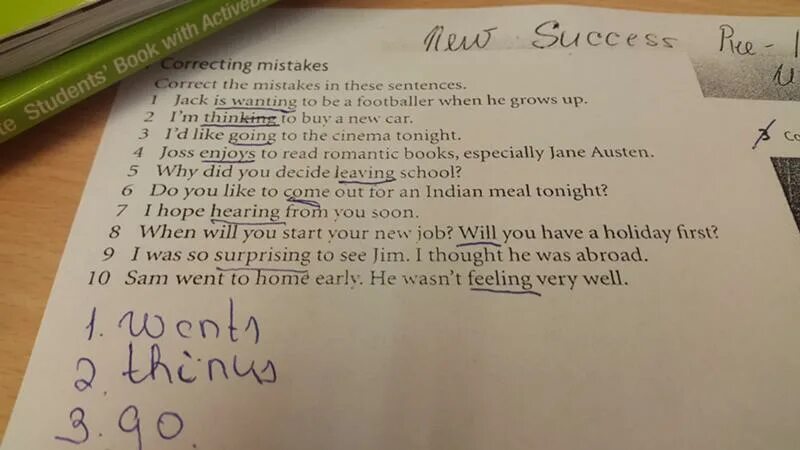 Students' Book with Active
New Success Pre-
Correcting mistakes
Correct the mistakes in these sentences.
1 Jack is wanting to be a footballer when he grows up.
2 I'm thinking to buy a new car.
3 I'd like going to the cinema tonight.
4 Joss enjoys to read romantic books, especially Jane Austen.
5 Why did you decide leaving school?
6 Do you like to come out for an Indian meal tonight?
7 I hope hearing from you soon.
8 When will you start your new job? Will you have a holiday first?
9 I was so surprising to see Jim. I thought he was abroad.
10 Sam went to home early. He wasn't feeling very well.
1. wants
2. thinks
3. go